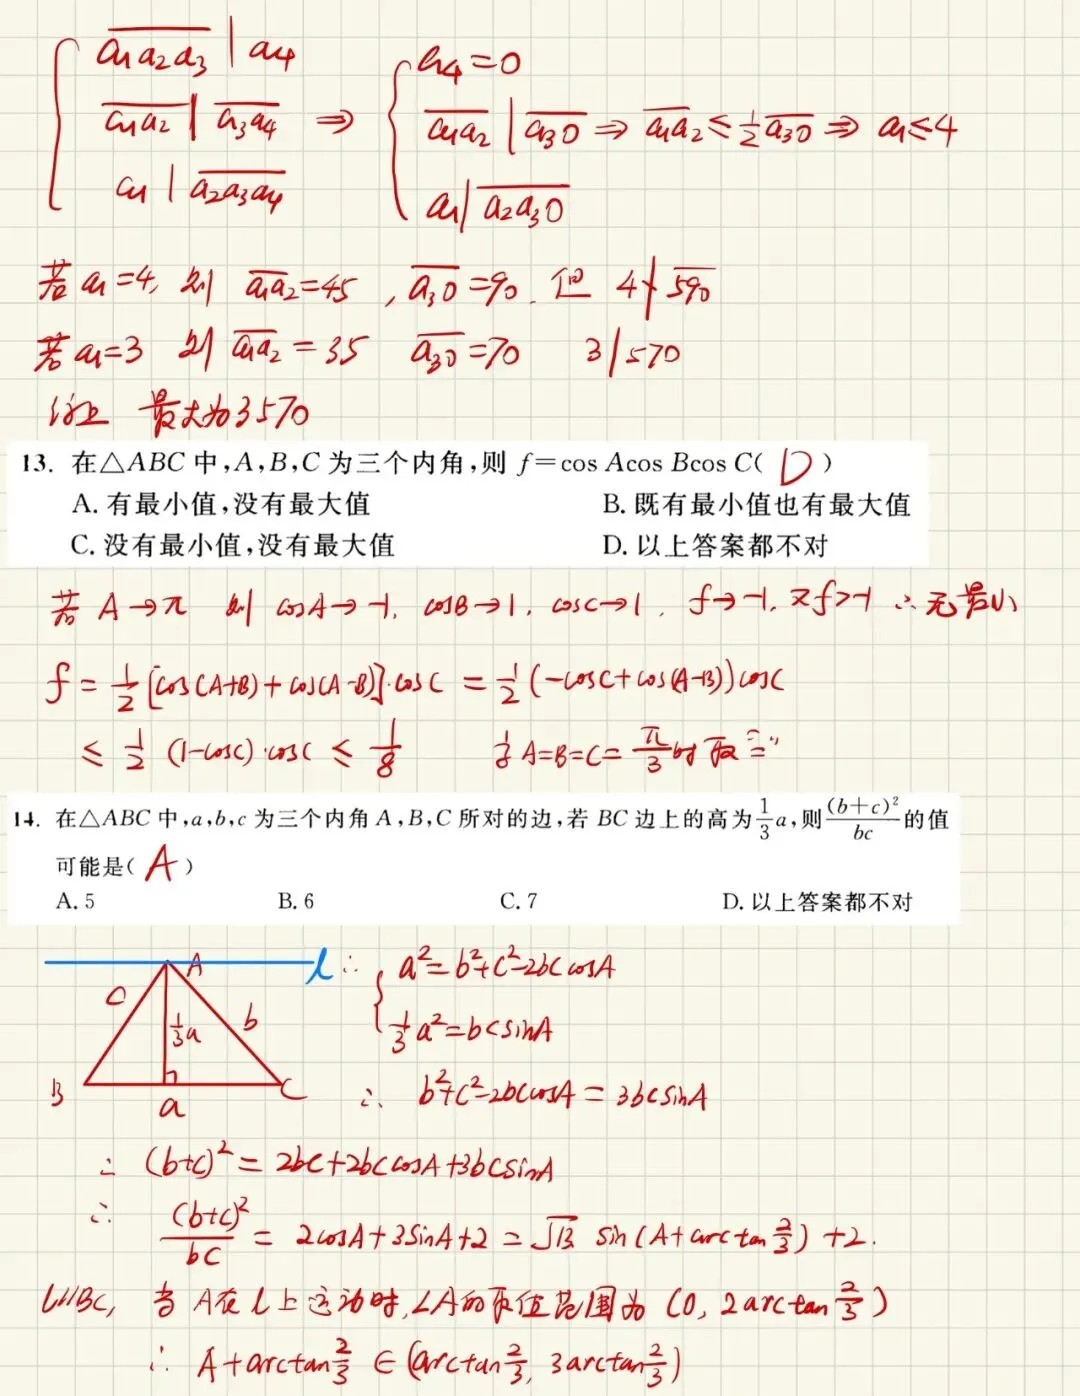 $\overline{a_1a_2a_3} | a_4$
$\overline{a_1a_2} | \overline{a_3a_4}$ ⇒
$a_1 | \overline{a_2a_3a_4}$
$a_4=0$
$\overline{a_1a_2} | \overline{a_30}$ ⇒ $\overline{a_1a_2} ≤ \frac{1}{2}\overline{a_30}$ ⇒ $a_1≤4$
$a_1 | \overline{a_2a_30}$
若 $a_1=4$, 则 $\overline{a_1a_2}=45$, $\overline{a_30}=90$. 但 $4∤\overline{590}$
若 $a_1=3$ 则 $\overline{a_1a_2}=35$ $\overline{a_30}=70$ $3|570$
综上 最大为3570
13. 在△ABC 中,A,B,C 为三个内角,则 f=cos Acos Bcos C( D )
A. 有最小值,没有最大值 B. 既有最小值也有最大值
C. 没有最小值,没有最大值 D. 以上答案都不对
若 A→π 则 cosA→-1, cosB→1, cosC→1, f→-1. 又f>-1 ∴ 无最小
$f=\frac{1}{2}[cos(A+B)+cos(A-B)]·cosC=\frac{1}{2}(-cosC+cos(A-B))cosC$
$≤\frac{1}{2}(1-cosC)·cosC≤\frac{1}{8}$ 当 $A=B=C=\frac{π}{3}$ 时 取"="
14. 在△ABC 中,a,b,c 为三个内角 A,B,C 所对的边,若 BC 边上的高为$\frac{1}{3}a$,则$\frac{(b+c)^2}{bc}$的值
可能是( A )
A. 5 B. 6 C. 7 D. 以上答案都不对
A
l
c
$\frac{1}{3}a$
b
B
a
C
∴ $a^2=b^2+c^2-2bccosA$
$\frac{1}{3}a^2=bcsinA$
∴ $b^2+c^2-2bccosA=3bcsinA$
∴ $(b+c)^2=2bc+2bccosA+3bcsinA$
∴ $\frac{(b+c)^2}{bc}=2cosA+3sinA+2=\sqrt{13}sin(A+arctan\frac{2}{3})+2.$
l∥BC, 当 A在 l 上运动时,∠A的取值范围为 $(0, 2arctan\frac{3}{2})$
∴ $A+arctan\frac{2}{3}∈(arctan\frac{2}{3}, 3arctan\frac{2}{3})$